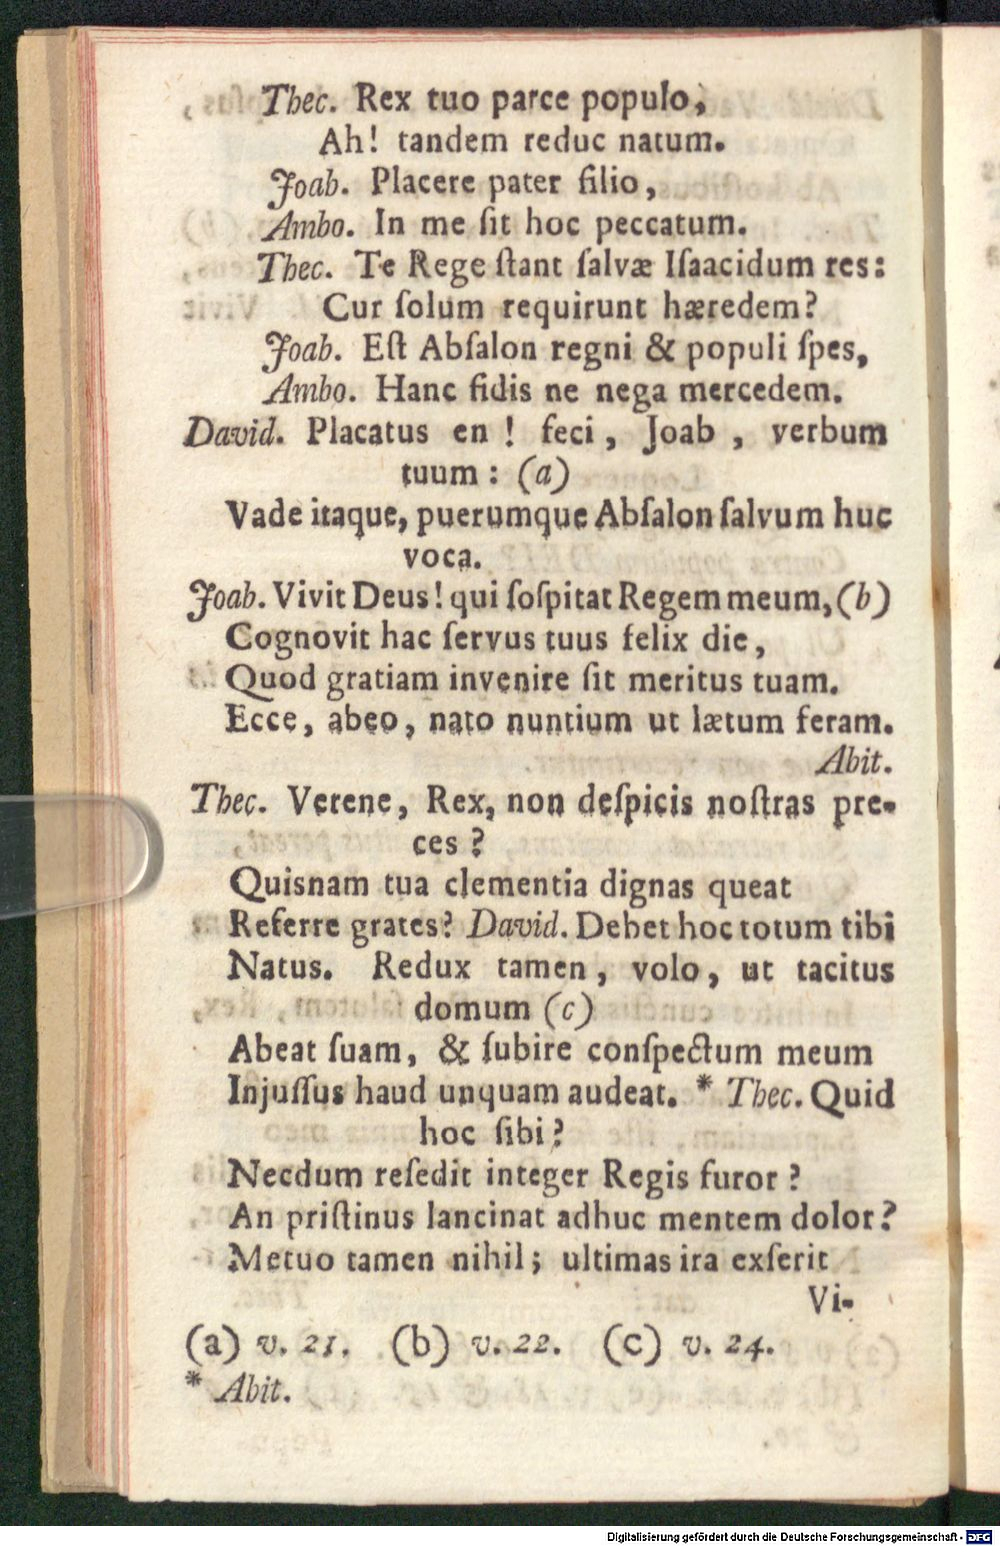 Thec. Rex tuo parce populo,
Ah! tandem reduc natum.
Joab. Placere pater filio,
Ambo. In me ſit hoc peccatum.
Thec. Te Rege ſtant ſalvæ Iſaacidum res:
Cur ſolum requirunt hæredem?
Joab. Eſt Abſalon regni & populi ſpes,
Ambo. Hanc fidis ne nega mercedem.
David. Placatus en ! feci , Joab , verbum
tuum : (a)
Vade itaque, puerumque Abſalon ſalvum huc
voca.
Joab. Vivit Deus! qui ſoſpitat Regem meum, (b)
Cognovit hac ſervus tuus felix die,
Quod gratiam invenire ſit meritus tuam.
Ecce, abeo, nato nuntium ut lætum feram.
Abit.
Thec. Verene, Rex, non deſpicis noſtras pre-
ces ?
Quisnam tua clementia dignas queat
Referre grates? David. Debet hoc totum tibi
Natus. Redux tamen, volo, ut tacitus
domum (c)
Abeat ſuam, & ſubire conſpectum meum
Injuſſus haud unquam audeat. * Thec. Quid
hoc ſibi?
Necdum reſedit integer Regis furor ?
An priſtinus lancinat adhuc mentem dolor?
Metuo tamen nihil; ultimas ira exſerit
Vi-
(a) v. 21. (b) v. 22. (c) v. 24.
* Abit.
Digitalisierung gefördert durch die Deutsche Forschungsgemeinschaft - DFG